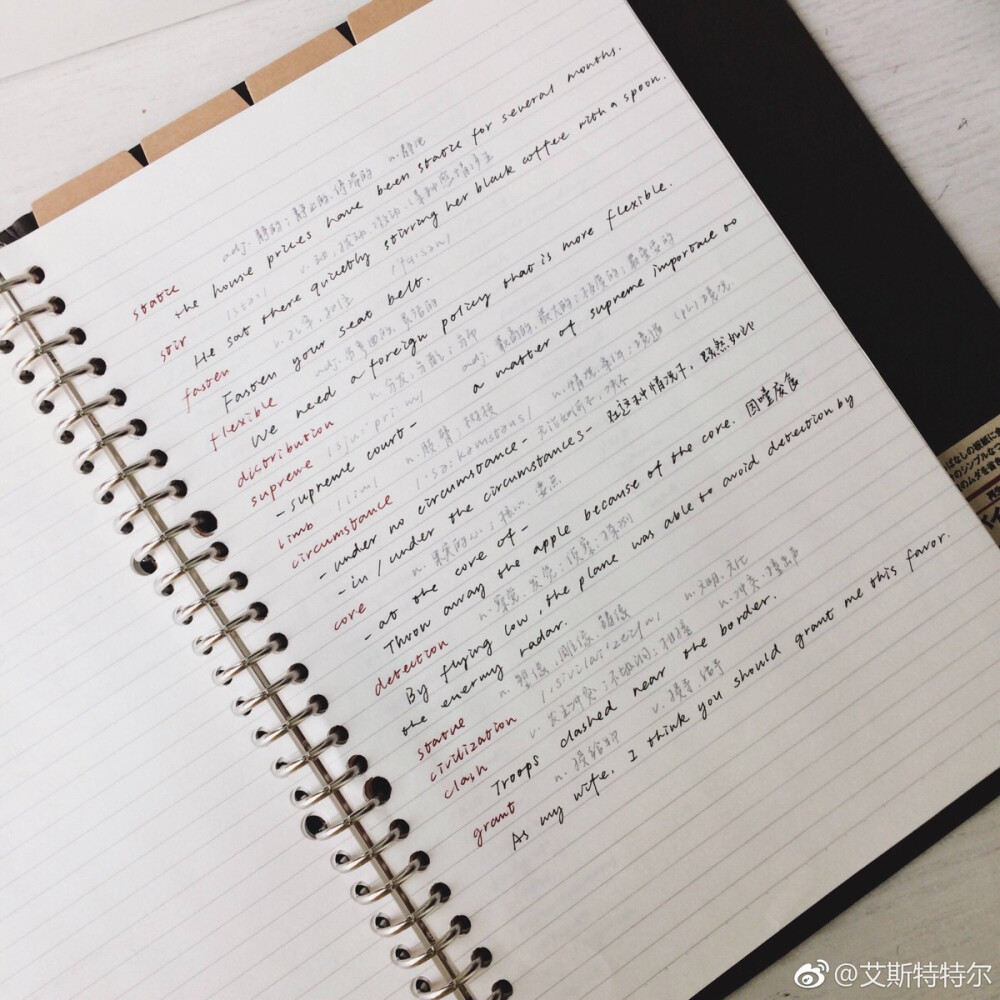 static adj. 静的；静止的，停滞的 n. 静电
the house prices have been static for several months.
stir v. 动，拨动，激动
He sat there quietly stirring her black coffee with a spoon.
fasten
Fasten your seat belt.
flexible
We need a foreign policy that is more flexible.
distribution
supreme adj. 最高的，最大的
- supreme court - a matter of supreme importace to
limb n. 肢，臂；树枝
circumstance n. 情况
- under no circumstance - 无论如何不
- in / under the circumstances - 在这种情况下，既然如此
core n. 果实的心；核心，要点
- at the core of -
Throw away the apple because of the core. 因噎废食
detection n. 察觉，发觉；侦察；探测
By flying low, the plane was able to avoid detection by
the enemy radar.
statue n. 塑像，雕像，铸像
civilization n. 文明，文化
clash v. 发生冲突；不协调；相撞 n. 冲突，撞击声
Troops clashed near the border.
grant v. 授予
As my wife. I think you should grant me this favor.
@艾斯特特尔